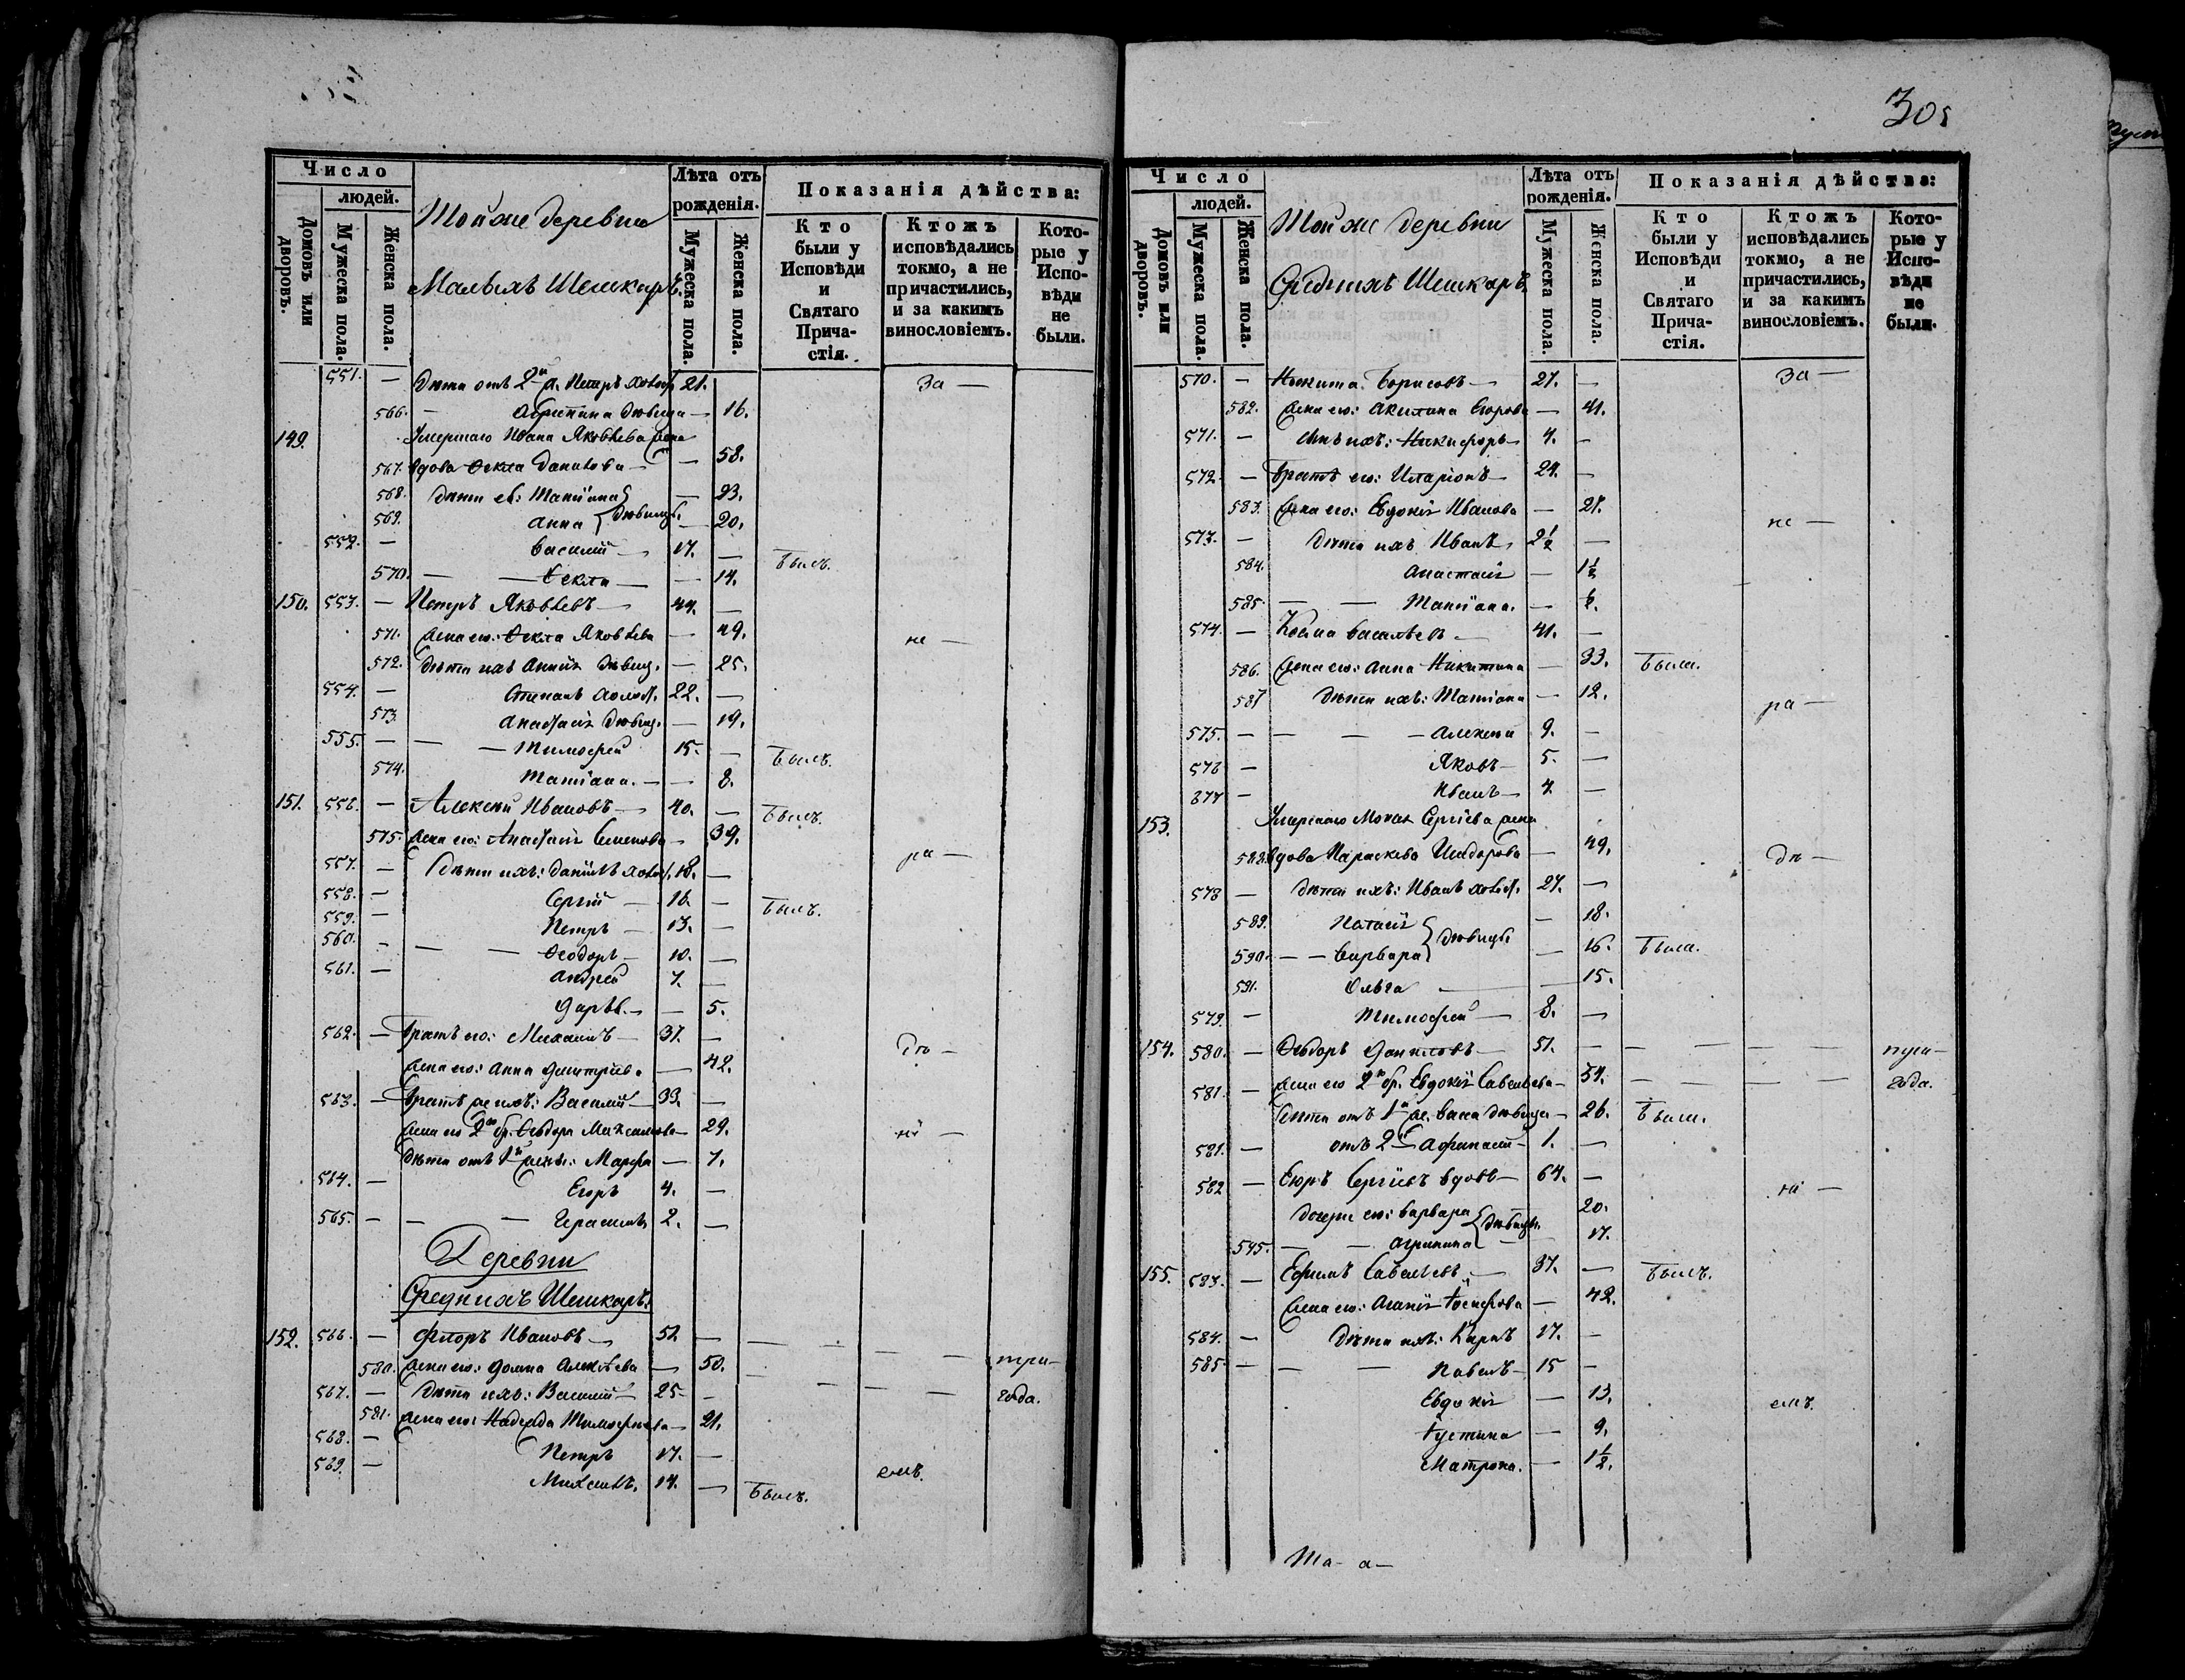 305
Число
людей.
Домовъ или дворовъ.
Мужеска пола.
Женска пола.
Той же деревни
Малыхъ Шешкаръ.
Лѣта отъ рожденія.
Мужеска пола.
Женска пола.
Показанія дѣйства:
Кто были у Исповѣди и Святаго Причастія.
Ктожъ исповѣдались токмо, а не причастились, и за какимъ винословіемъ.
Которые у Исповѣди не были.
551. — дѣти отъ 2й ж. Петръ холост 21. За —
566. — Агрипина дѣвица — 16.
149. Умершаго Ивана Яковлева жена
567. вдова Ѳекла Данилова — — 58.
568. дѣти ея: Татіана — 23.
569. Анна } дѣвицы. — 20.
552. — Василій — 17. — былъ.
570. — — Ѳекла — — 14.
150. 553. — Петръ Яковлевъ — 44. —
571. жена его: Ѳекла Яковлева — 49. не —
572. дѣти ихъ Анна дѣвиц. — 25.
554. — Степанъ холост. 22. —
573. Анастасія дѣвиц. — 19.
555. — — — Тимофей 15. — былъ.
574. Татіана. — — 8.
151. 556. — Алексѣй Ивановъ — 40. — былъ.
575. жена его: Анастасія Семенова — 39.
557. — дѣти ихъ: Даніилъ холост. 18. — ра —
558. — Сергій — 16. — былъ.
559. — Петръ — 13. —
560. — — — Ѳеодоръ — 10. —
561. — Андрей 7. —
Дарья. — — 5.
562. — Братъ его: Михаилъ — 37. — дѣ —
жена его: Анна Дмитріева — 42.
563. — Братъ же ихъ: Василій — 33. —
жена его 2го бр. Ѳедора Максимова — 29. ні —
дѣти отъ 1й жены: Марфа — 7.
564. — Егоръ 4. —
565. — — — Герасимъ 2. —
Деревни
Среднихъ Шешкаръ.
152. 566. — Флоръ Ивановъ — 51. — — — —
580. жена его: Домна Алексѣева — 50. — — — три—
567. — дѣти ихъ: Василій — 25. — — — — года.
581. жена его: Надежда Тимофеева — 21.
568. — Петръ 17. —
569. — Михаилъ. 14. — былъ. емъ.
Число
людей.
Домовъ или дворовъ.
Мужеска пола.
Женска пола.
Той же деревни
Среднихъ Шешкаръ
Лѣта отъ рожденія.
Мужеска пола.
Женска пола.
Показанія дѣйства:
Кто были у Исповѣди и Святаго Причастія.
Ктожъ исповѣдались токмо, а не причастились, и за какимъ винословіемъ.
Которые у Исповѣди не были.
570. — Никита Борисовъ — 27. — За —
582. жена его: Акилина Егорова — 41.
571. — сынъ ихъ: Никифоръ — 4. —
572. — Братъ его: Иларіонъ — 24. —
583. жена его: Евдокія Иванова — 21. не —
573. — дѣти ихъ Иванъ 2½ —
584. Анастасія — 1½
585. — — Татіана. —
574. — Косма Васильевъ — 41. —
586. жена его: Анна Никитина — 33. была.
587 дѣти ихъ: Татіана — 12. ра —
575. — — — — Алексѣй 9. —
576 — Яковъ — 5. —
577 — Иванъ — 4. —
153. Умершаго Мокія Сергіева жена
588. вдова Параскева Исидорова — 49. дѣ —
578 — дѣти ихъ: Иванъ холост. 27. —
589. Наталія — 18.
590. — — Варвара } дѣвицы — 16. была.
591. Ольга — 15.
579. — Тимофей — 8. —
154. 580. — Ѳедоръ Даниловъ — 51. — — — — — три—
581. — жена его 2го бр. Евдокія Савельева — 51. — — — года.
дѣти отъ 1й ж. дѣвица — 26. была.
581. — отъ 2й Афанасій — 1. —
582 — Егоръ Сергіевъ вдовъ — 64. — ні —
дочери его: Варвара 20.
545. — — Агрипина } дѣвицы — 17.
155. 583. — Ефимъ Савельевъ — 37. — былъ.
жена его: Агапія Іосифова — 42.
584. — дѣти ихъ: Карпъ 17. —
585 — — — Павелъ — 15 —
Евдокія — 13. емъ.
Іустина — 9.
Матрона. — 1½.
Та- а—